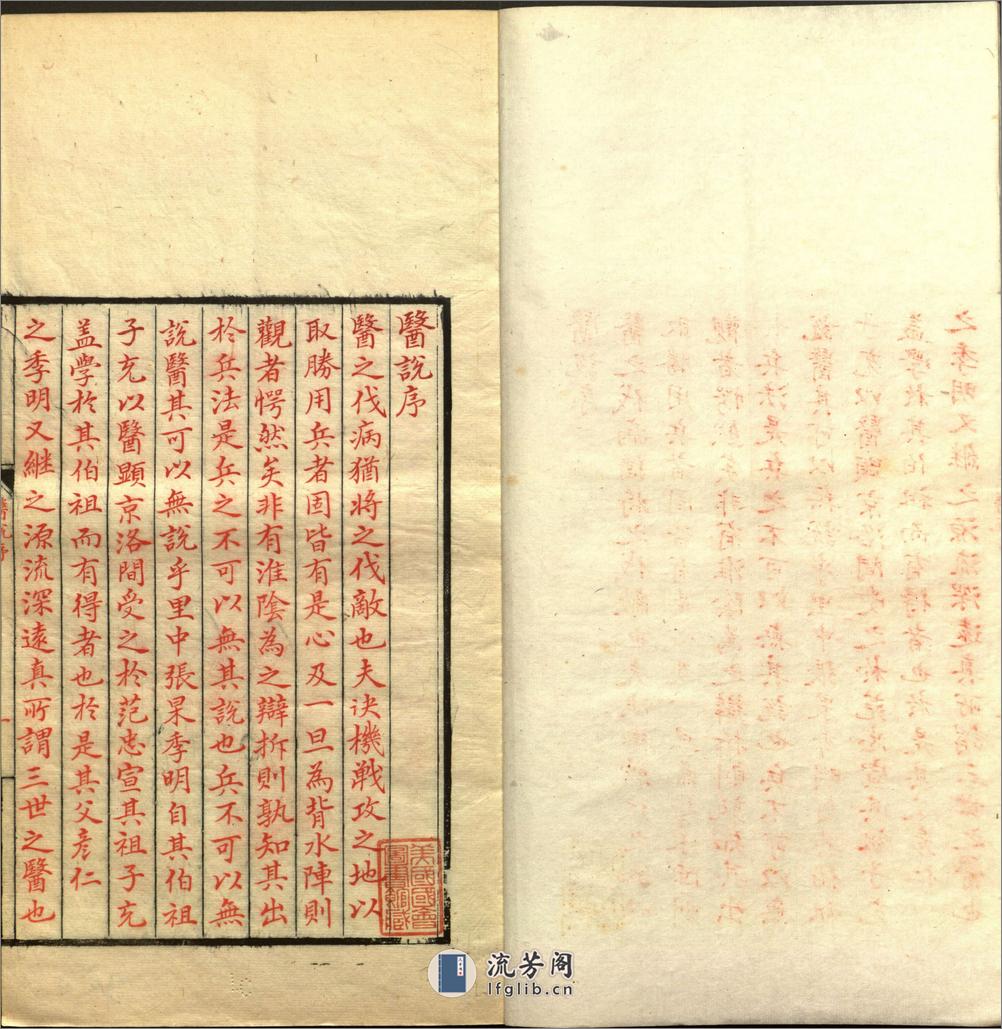 醫說序
醫之伐病猶將之伐敵也夫决機戰攻之地以
取勝用兵者固皆有是心及一旦為背水陣則
觀者愕然矣非有淮陰為之辯拆則孰知其出
於兵法是兵之不可以無其說也兵不可以無
說醫其可以無說乎里中張杲季明自其伯祖
子充以醫顯京洛間受之於范忠宣其祖子充
盖學於其伯祖而有得者也於是其父彥仁
之季明又継之源流深遠真所謂三世之醫也
醫說序
一
美國國會
圖書館藏
流芳阁
lfglib.cn